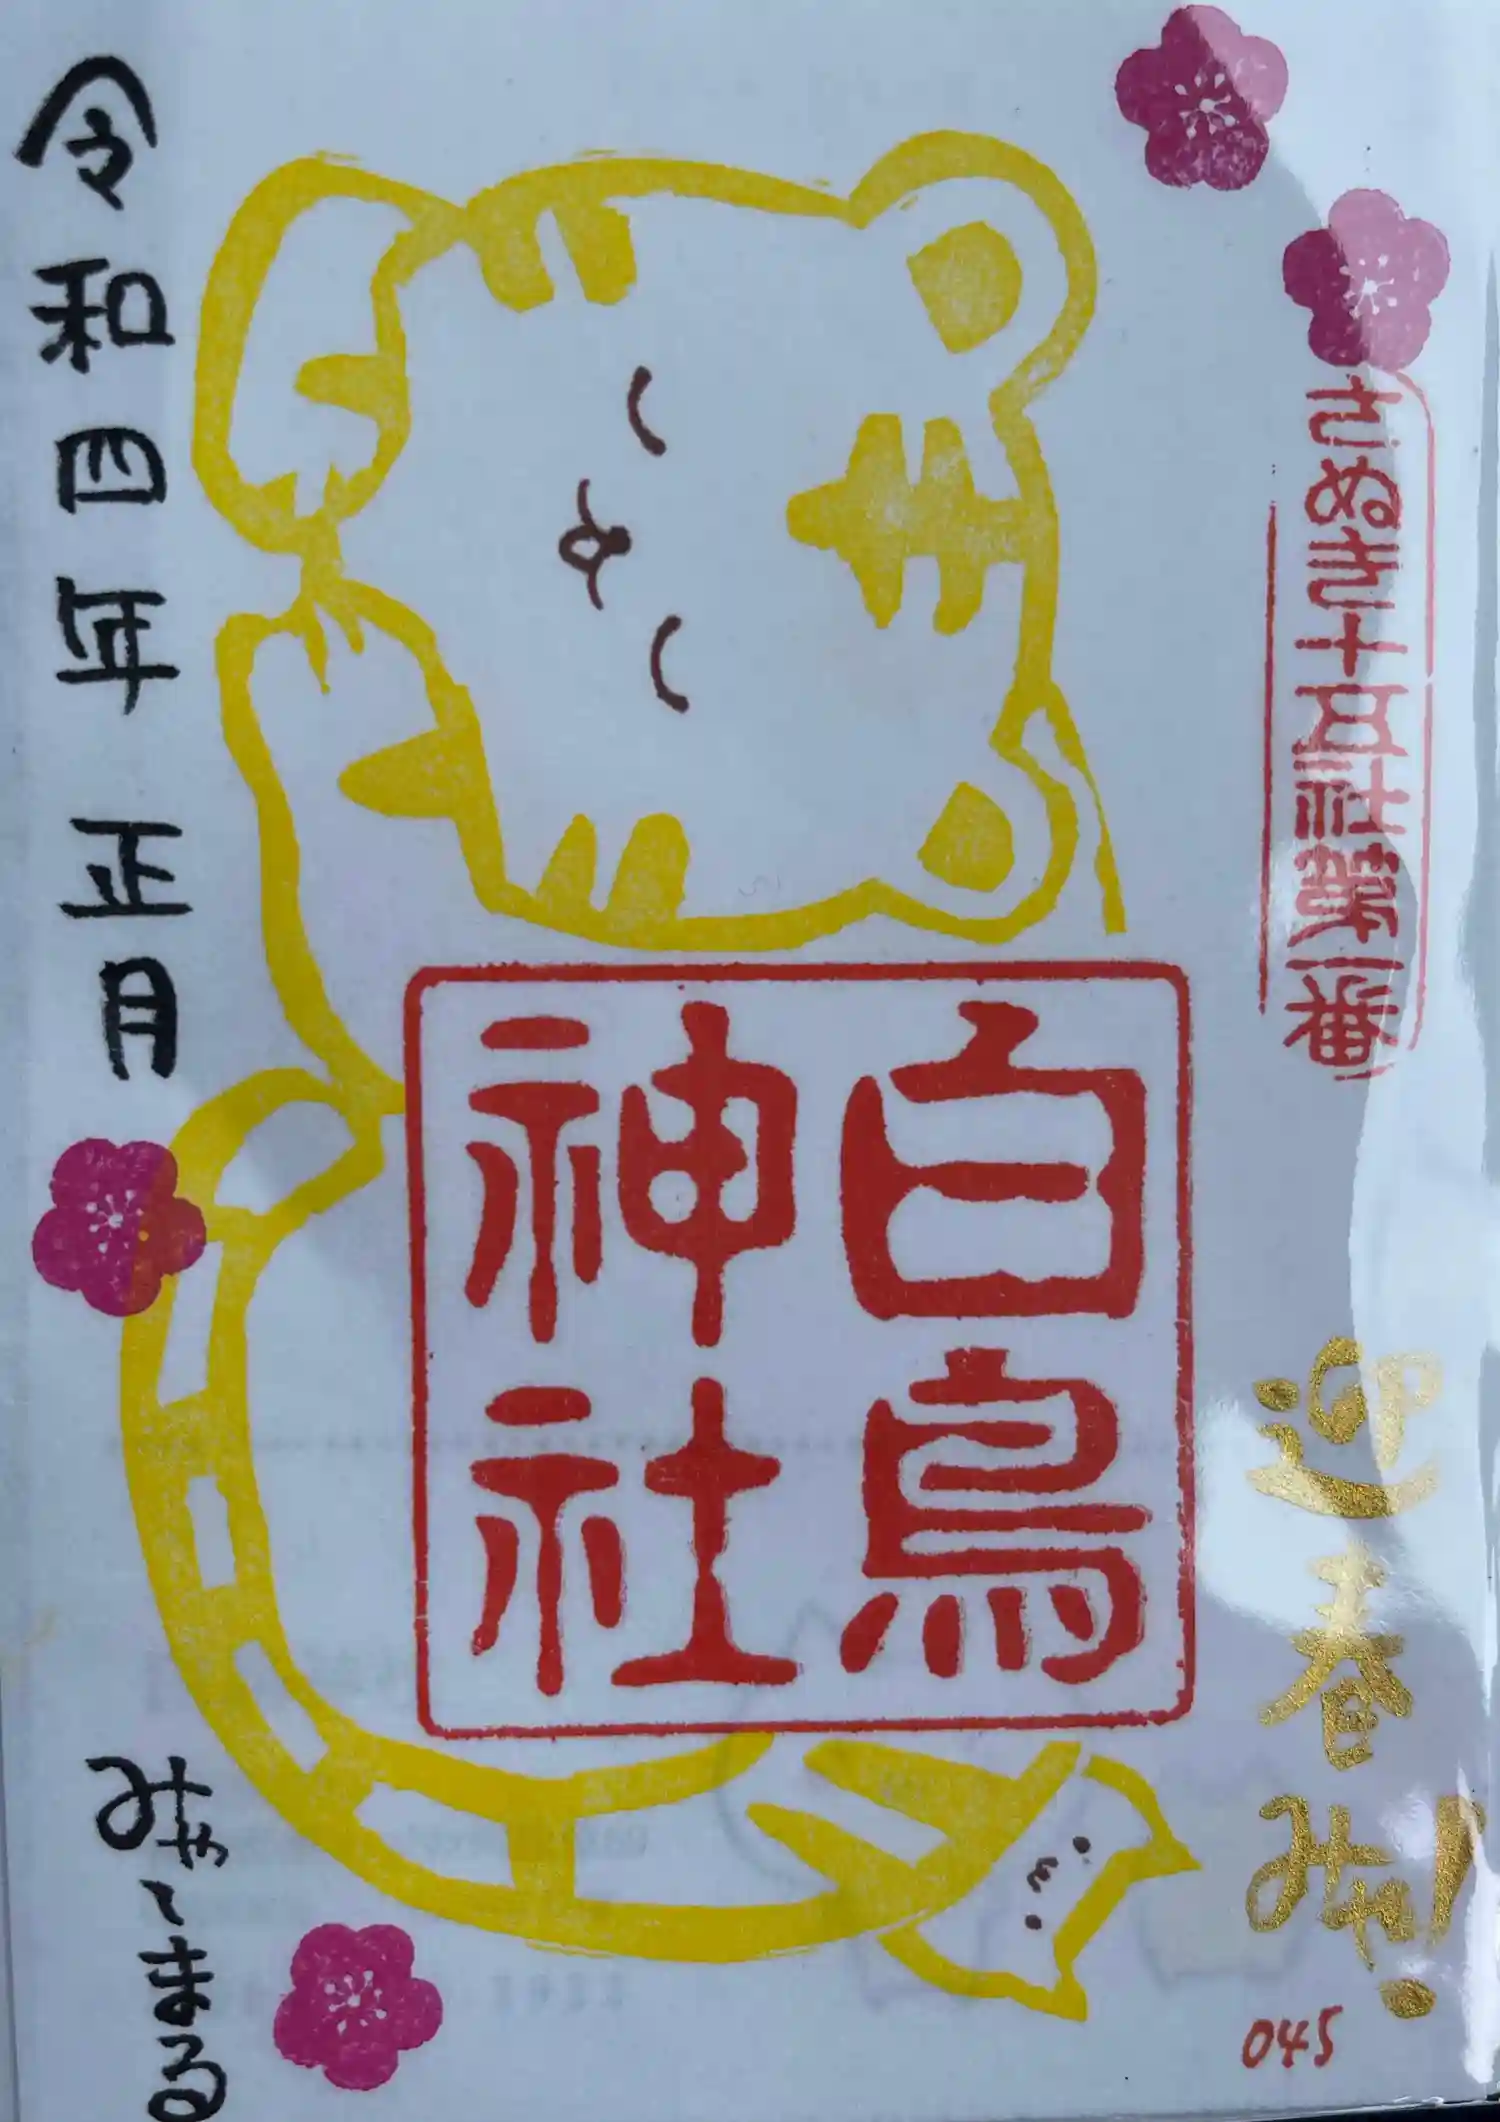 さぬき十五社第一番
迎春みゃ!
045
白鳥
神社
令和四年 正月
みゃーまる